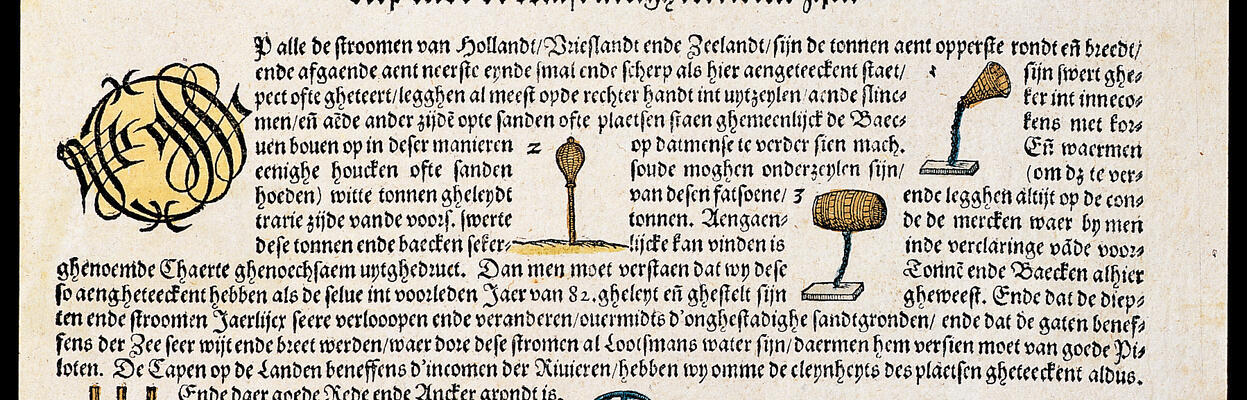 P alle de stroomen van Hollandt/Vrieslandt ende Zeelandt/sijn de tonnen aent opperste rondt eñ breedt/
ende afgaende aent neerste eynde smal ende scherp als hier aengeteeckent staet/ 1 sijn swert ghe-
pect ofte gheteert/legghen al meest opde rechter handt int uytzeylen/aende slinc- ker int inneco-
men/eñ aēde ander zijdē opte sanden ofte plaetsen staen ghemeenlijck de Baec- kens met kor-
uen bouen op in deser manieren 2 op datmense te verder sien mach. Eñ waermen
eenighe houcken ofte sanden soude moghen onderzeylen sijn/ (om dz te ver-
hoeden) witte tonnen gheleydt van desen fatsoene/ 3 ende legghen altijt op de con-
trarie zijde vande voors. swerte tonnen. Aengaen- de de mercken waer by men
dese tonnen ende baecken seker- lijcke kan vinden is inde verclaringe vāde voor-
ghenoemde Chaerte ghenoechsaem uytghedruct. Dan men moet verstaen dat wy dese Tonnē ende Baecken alhier
so aengheteeckent hebben als de selue int voorleden Jaer van 82. gheleyt eñ ghestelt sijn gheweest. Ende dat de diep-
ten ende stroomen Jaerlijcx seere verlooopen ende veranderen/ouermidts d'onghestadighe sandtgronden/ ende dat de gaten benef-
fens der Zee seer wijt ende breet werden/waer dore dese stromen al Lootsmans water sijn/daermen hem versien moet van goede Pi-
loten. De Capen op de Landen beneffens d'incomen der Riuieren/hebben wy omme de cleynheyts des plaetsen gheteeckent aldus.
Ende daer goede Rede ende Ancker grondt is.